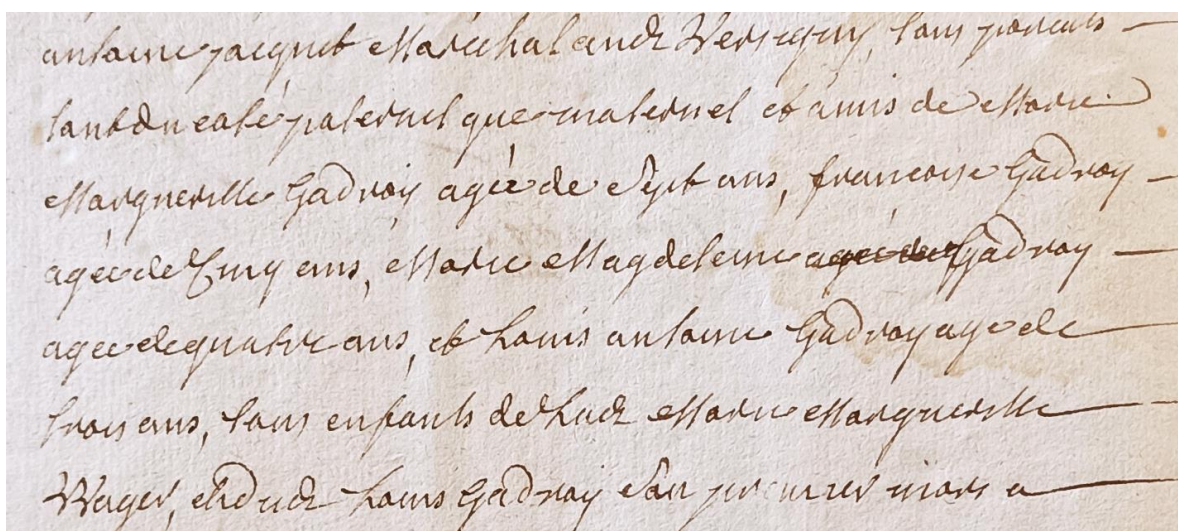 antoine jacquet Marechal audt Versigny, tous parents
tant du coté paternel que maternel et amis de Marie
Marguerille Gadroy agée de Sept ans, francoise Gadroy
agée de Cinq ans, Marie Magdeleine agée de Gadroy
agée de quatre ans, et Louis antoine Gadroy age de
trois ans, tous enfants de Ladt Marie Marguerille
Wager, et dudt Louis Gadroy Son premier mari a